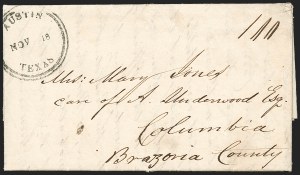 AUSTIN
NOV 18
TEXAS
Mrs. Mary Jones
care of A. Underwood Esq.
Columbia
Brazoria County